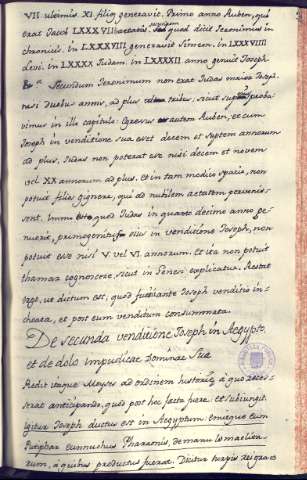 VII ultimis XI filios generavit. Primo anno Ruben, qui
erat Jacob LXXXVII aetatis suae, quod dicit Jeronimus in
chronicis. In LXXXVIIII generavit Simeon. In LXXXVIIII
Levi. In LXXXX Judam. In LXXXXII anno genuit Joseph.
Secundum Jeronimum non erat Judas maior Joseph,
nisi duobus annis, ad plus tribus, sicut supra proba-
vimus in illi capitulo. Egressus autem Ruben, et cum
Joseph in venditione sua esset decem et septem annorum
ad plus, Judas non poterat esse nisi decem et novem
vel XX annorum ad plus. Et in tam medico spacio, non
potuit filios gignere, qui ad nubilem aetatem pervenis-
sent. Immo quod Judas in quarto decimo anno ge-
nuerit, primogenitus eius in venditione Joseph, non
potuit esse nisi V vel VI annorum. Et ita non potuit
thamar cognoscere, sicut in Genesi explicatur. Restat
ergo, ut dictum est, quod fuerit ante Joseph venditio in-
choata, et post eum venditum consummata.
De secunda venditione Joseph in Aegypto,
et de dolo impudicae Dominae Suae
Redit itaque Moyses ad ordinem historiae, a quo reces-
serat anticipando, quod post hec facta fuere. et subiungit.
Igitur Joseph ductus est in Aegyptum: emitque eum
Putiphar eunuchus Pharaonis, de manu Ismaelita-
rum, a quibus productus fuerat. Dicitur